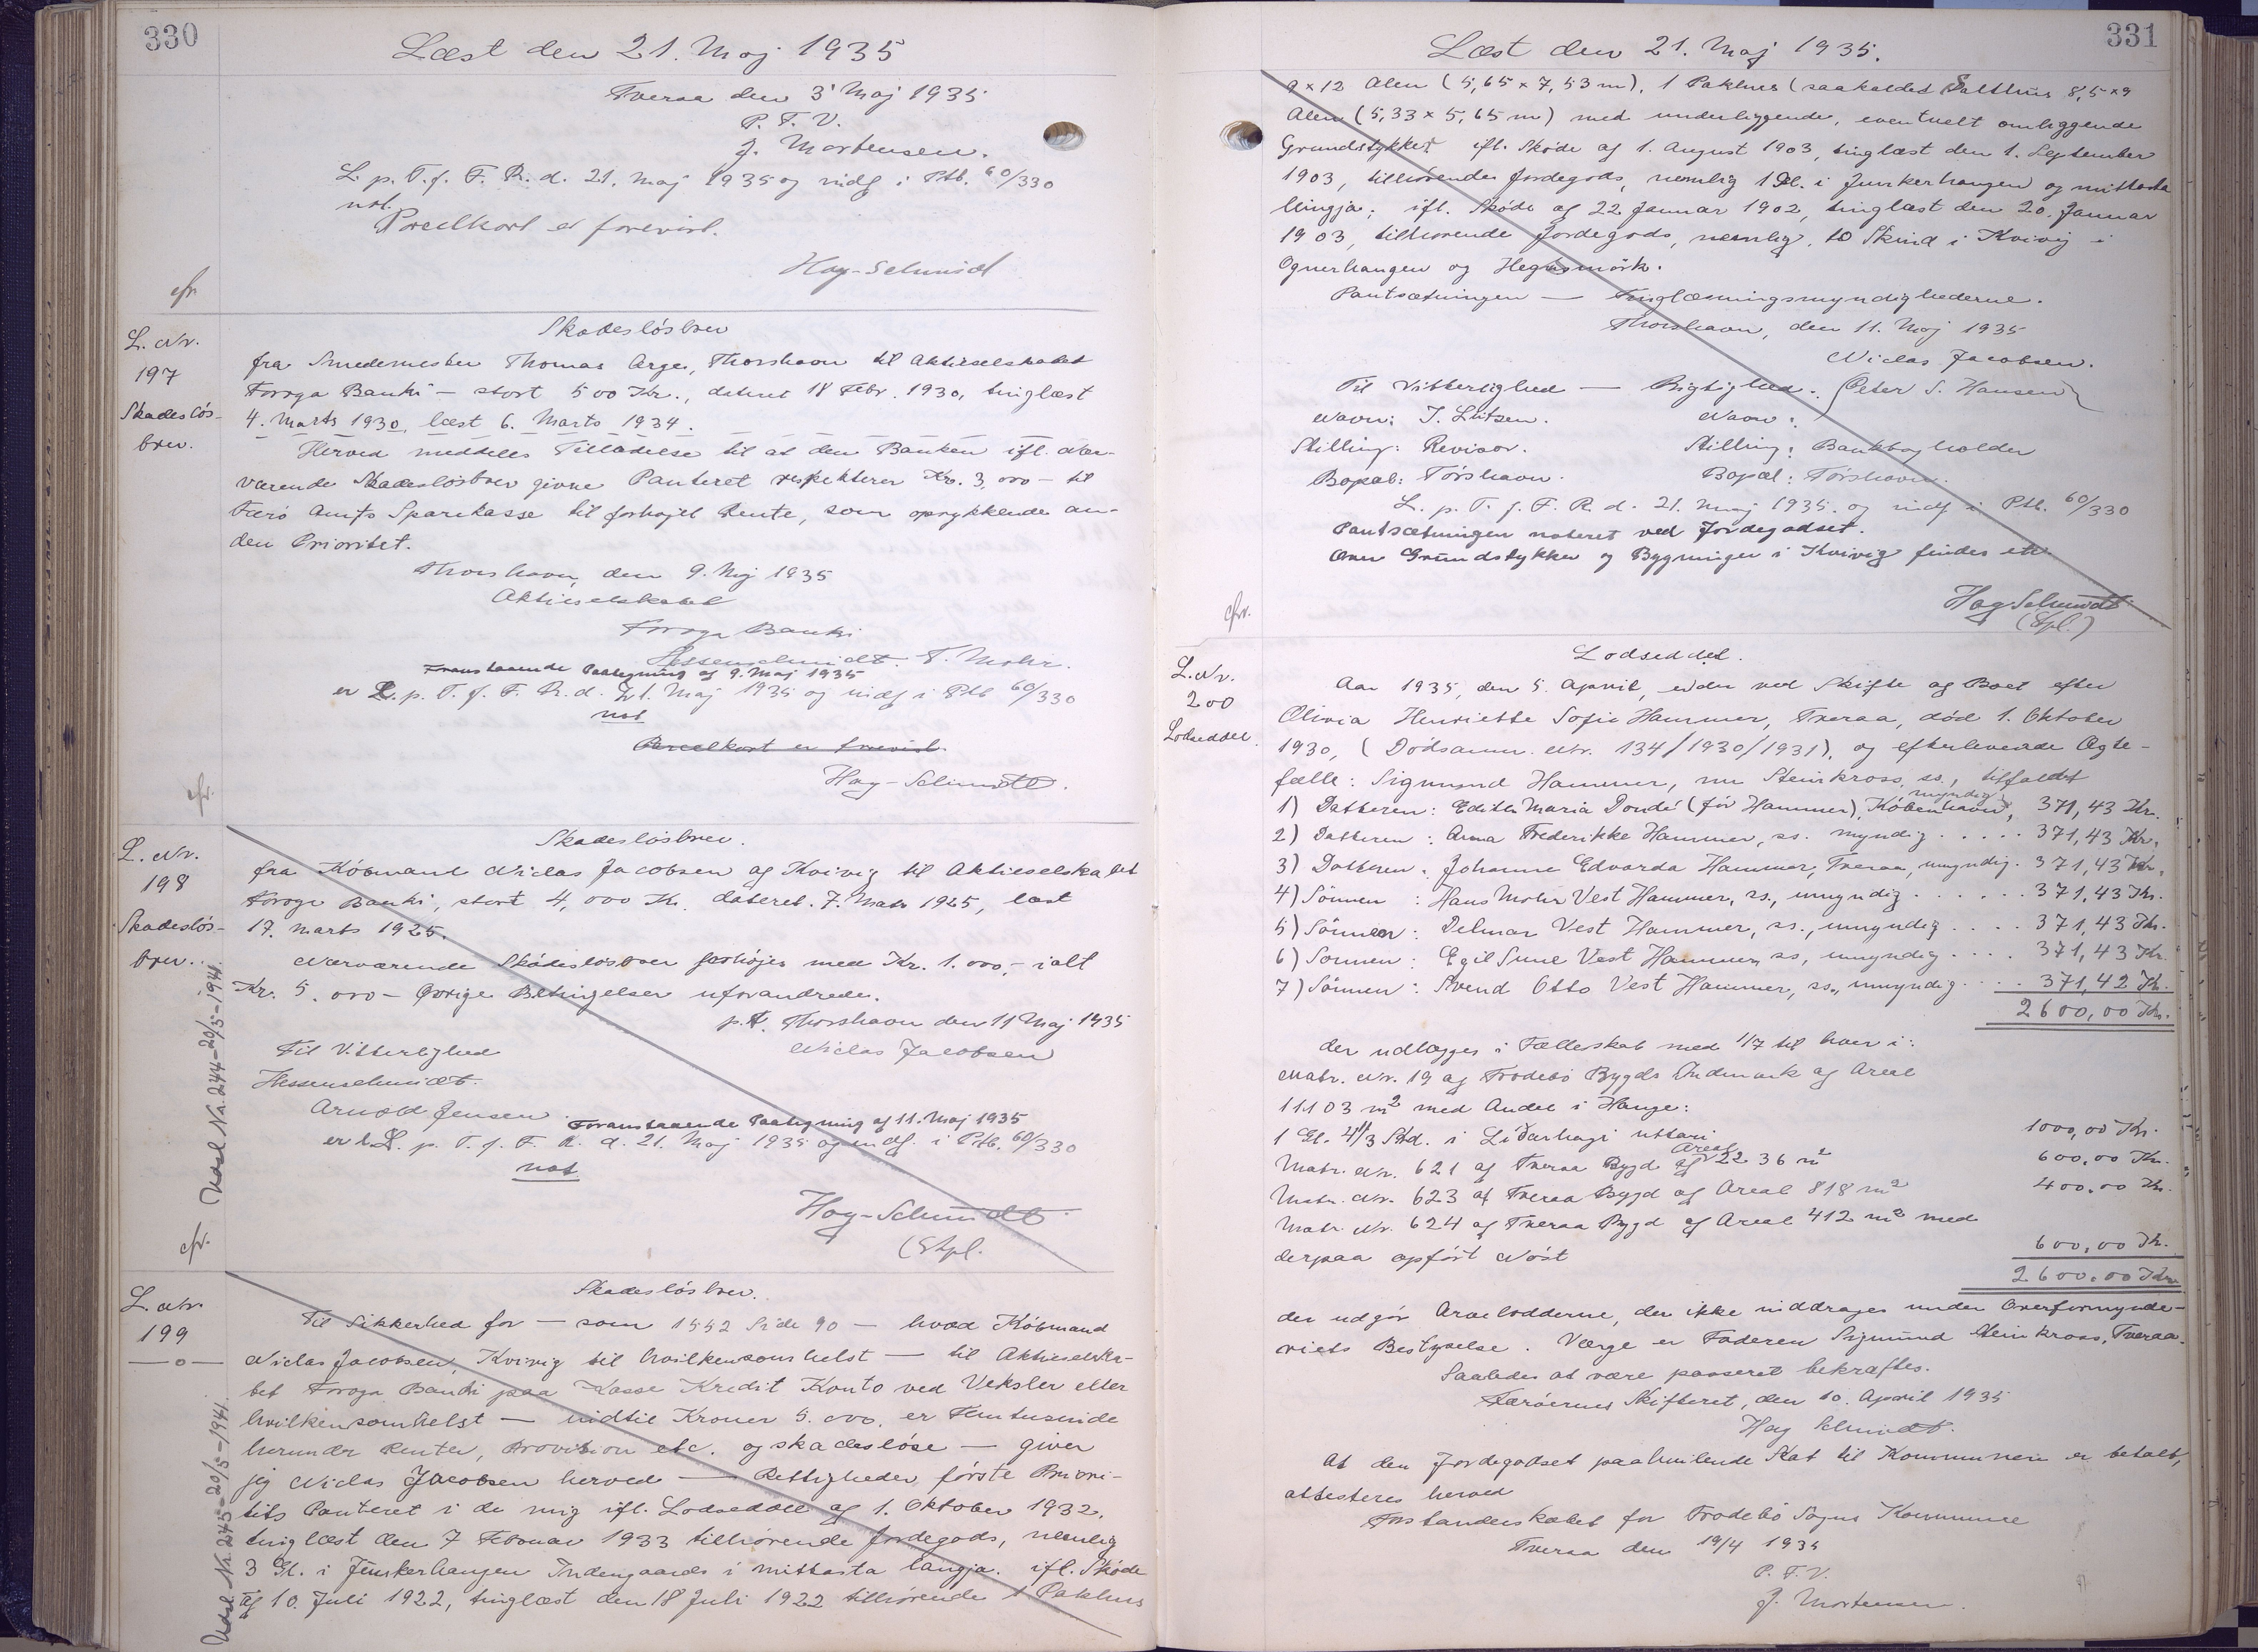 330
Læst den 21. Maj 1935
Tveraa den 3' Maj 1935
P. F. V.
J. Mortensen.
L. p. T. f. F. R. d. 21. Maj 1935 og indf i Ptb. 60/330
not.
Parcelkort er forevist.
Høg-Schmidt
cfr.
L. Nr.
197
Skadesløs-
brev.
Skadesløsbrev
fra Smedemester Thomas Arge, Thorshavn til Aktieselskabet
Føroya Banki - stort 500 Kr., dateret 18 Febr. 1930, tinglæst
4. Marts 1930, læst 6. Marts 1934.
Herved meddeles Tilladelse til at den Banken ifl. nær-
værende Skadesløsbrev givne Panteret respekterer Kr. 3,000 - til
Færø Amts Sparekasse til forhøjet Rente, som oprykkende an-
den Prioritet.
Thorshavn, den 9. Maj 1935
Aktieselskabet
Føroya Banki
Hessenschmidt. T. Mohr.
Foranstaaende Paategning af 9. Maj 1935
er L. p. T. f. F. R. d. 21. Maj 1935 og indf i Ptb 60/330
not
Parcelkort er forevist.
Høg-Schmidt.
cfr.
L. Nr.
198
Skadesløs-
brev.
Skadesløsbrev.
fra Købmand Niclas Jacobsen af Kvivig til Aktieselskabet
Føroya Banki, stort 4,000 Kr. dateret. 7. Marts 1925, læst
17. Marts 1925.
Nærværende Skadesløsbrev forhøjes med Kr. 1.000,- ialt
Kr. 5.000 - Øvrige Betingelser uforandrede.
p.t. Thorshavn den 11 Maj 1935
Til Vitterlighed
Niclas Jacobsen
Hessenschmidt.
Arnold Jensen.
Foranstaaende Paategning af 11. Maj 1935
er L. p. T. f. F. R. d. 21. Maj 1935 og indf. i Ptb. 60/330
not
Høg-Schmidt
(Stpl.
Udsl. Nr. 244 - 20/5 - 1941.
cfr.
L. Nr.
199
—o—
Skadesløsbrev.
Til Sikkerhed for — som 1552 Side 90 — hvad Købmand
Niclas Jacobsen, Kvivig til hvilkensomhelst — til Aktieselska-
bet Føroya Banki paa Kasse Kredit Konto ved Veksler eller
hvilkensomhelst — indtil Kroner 5.000. er Femtusinde
herunder Renter, Provision etc. og skadesløse — giver
jeg Niclas Jacobsen herved — Rettigheder første Priori-
tets Panteret i de mig ifl. Lodseddel af 1. Oktober 1932,
tinglæst den 7 Februar 1933 tilhørende Jordegods, nemlig
3 Gl. i Junkerhaugen Indengaards i mittasta langja. ifl. Skøde
af 10. Juli 1922, tinglæst den 18 Juli 1922 tilhørende 1 Pakhus
Udsl. Nr. 245 - 20/5 - 1941.
331
Læst den 21. Maj 1935.
9 × 12 Alen (5,65 × 7,53 m), 1 Pakhus (saakaldet Salthus 8,5 × 9
Alen (5,33 × 5,65 m) med underliggende, eventuelt omliggende
Grundstykker ifl. Skøde af 1. August 1903, tinglæst den 1. September
1903, tilhørende Jordegods, nemlig 1 Gl. i Junkerhaugen og mittasta
llingja; ifl. Skøde af 22 Januar 1902, tinglæst den 20. Januar
1903, tilhørende Jordegods, nemlig. 10 Skind i Kvivig i
Ognerhaugen og Hegnsmørk.
Pantsætningen — Tinglæsningsmyndighederne.
Thorshavn, den 11. Maj 1935
Niclas Jacobsen.
Til Vitterlighed — Rigtighed. (Peter S. Hansen)
Navn: J. Lützen. Navn:
Stilling: Revisor. Stilling: Bankbogholder
Bopæl: Tórshavn. Bopæl: Tórshavn.
L. p. T. f. F. R. d. 21. Maj 1935. og indf i Ptb. 60/330
Pantsætningen noteret ved Jordegodset.
Over Grundstykker og Bygninger i Kvivig findes ete
Høg Schmidt
(Stpl.)
cfr.
L. Nr.
200
Lodseddel.
Lodseddel.
Aar 1935, den 5. April, er der ved Skifte og Boet efter
Olivia Henriette Sofie Hammer, Tveraa, død 1. Oktober
1930, (Dødsanm. Nr. 134/1930/1931), og efterlevende Ægte-
fælle: Sigmund Hammer, nu Steinkross, ss., tilfaldt
1) Datteren: Edith Maria Dondé (før Hammer), København, myndig, 371,43 Kr.
2) Datteren: Anna Frederikke Hammer, ss. myndig . . . . . 371,43 Kr.
3) Datteren: Johanne Edvarda Hammer, Tveraa, umyndig. 371,43 Kr.
4) Sønnen : Hans Mohr Vest Hammer, ss., umyndig . . . . . . 371,43 Kr.
5) Sønnen : Delmar Vest Hammer, ss., umyndig . . . . 371,43 Kr.
6) Sønnen : Egil Sune Vest Hammer, ss, umyndig . . . . 371,43 Kr.
7) Sønnen : Svend Otto Vest Hammer, ss., umyndig . . . . 371,42 Kr.
2600,00 Kr.
der udlægges i Fælleskab med 1/7 til hver i:
Matr. Nr. 19 af Frodebø Bygds Indmark af Areal
11103 m² med Andel i Hauge:
1 Gl. 4 1/3 Skd. i Liðarhagi uttari 1000,00 Kr.
Matr. Nr. 621 af Tveraa Bygd af Areal 2236 m² 600,00 Kr.
Matr. Nr. 623 af Tveraa Bygd af Areal 818 m² 400,00 Kr.
Matr. Nr. 624 af Tveraa Bygd af Areal 412 m² med
derpaa opført Nøst 600,00 Kr.
2.600,00 Kr.
der udgør Arvelodderne, der ikke inddrages under Overformynde-
riets Bestyrelse. Værge er Faderen Sigmund Steinkross, Tveraa.
Saaledes at være passeret bekræftes.
Færøernes Skifteret, den 10. April 1935
Høg Schmidt.
At den Jordegodset paahvilende Skat til Kommunen er betalt,
attesteres herved
Forstanderskabet for Frodebø Sogns Kommune
Tveraa den 19/4 1935
P. F. V.
J. Mortensen.